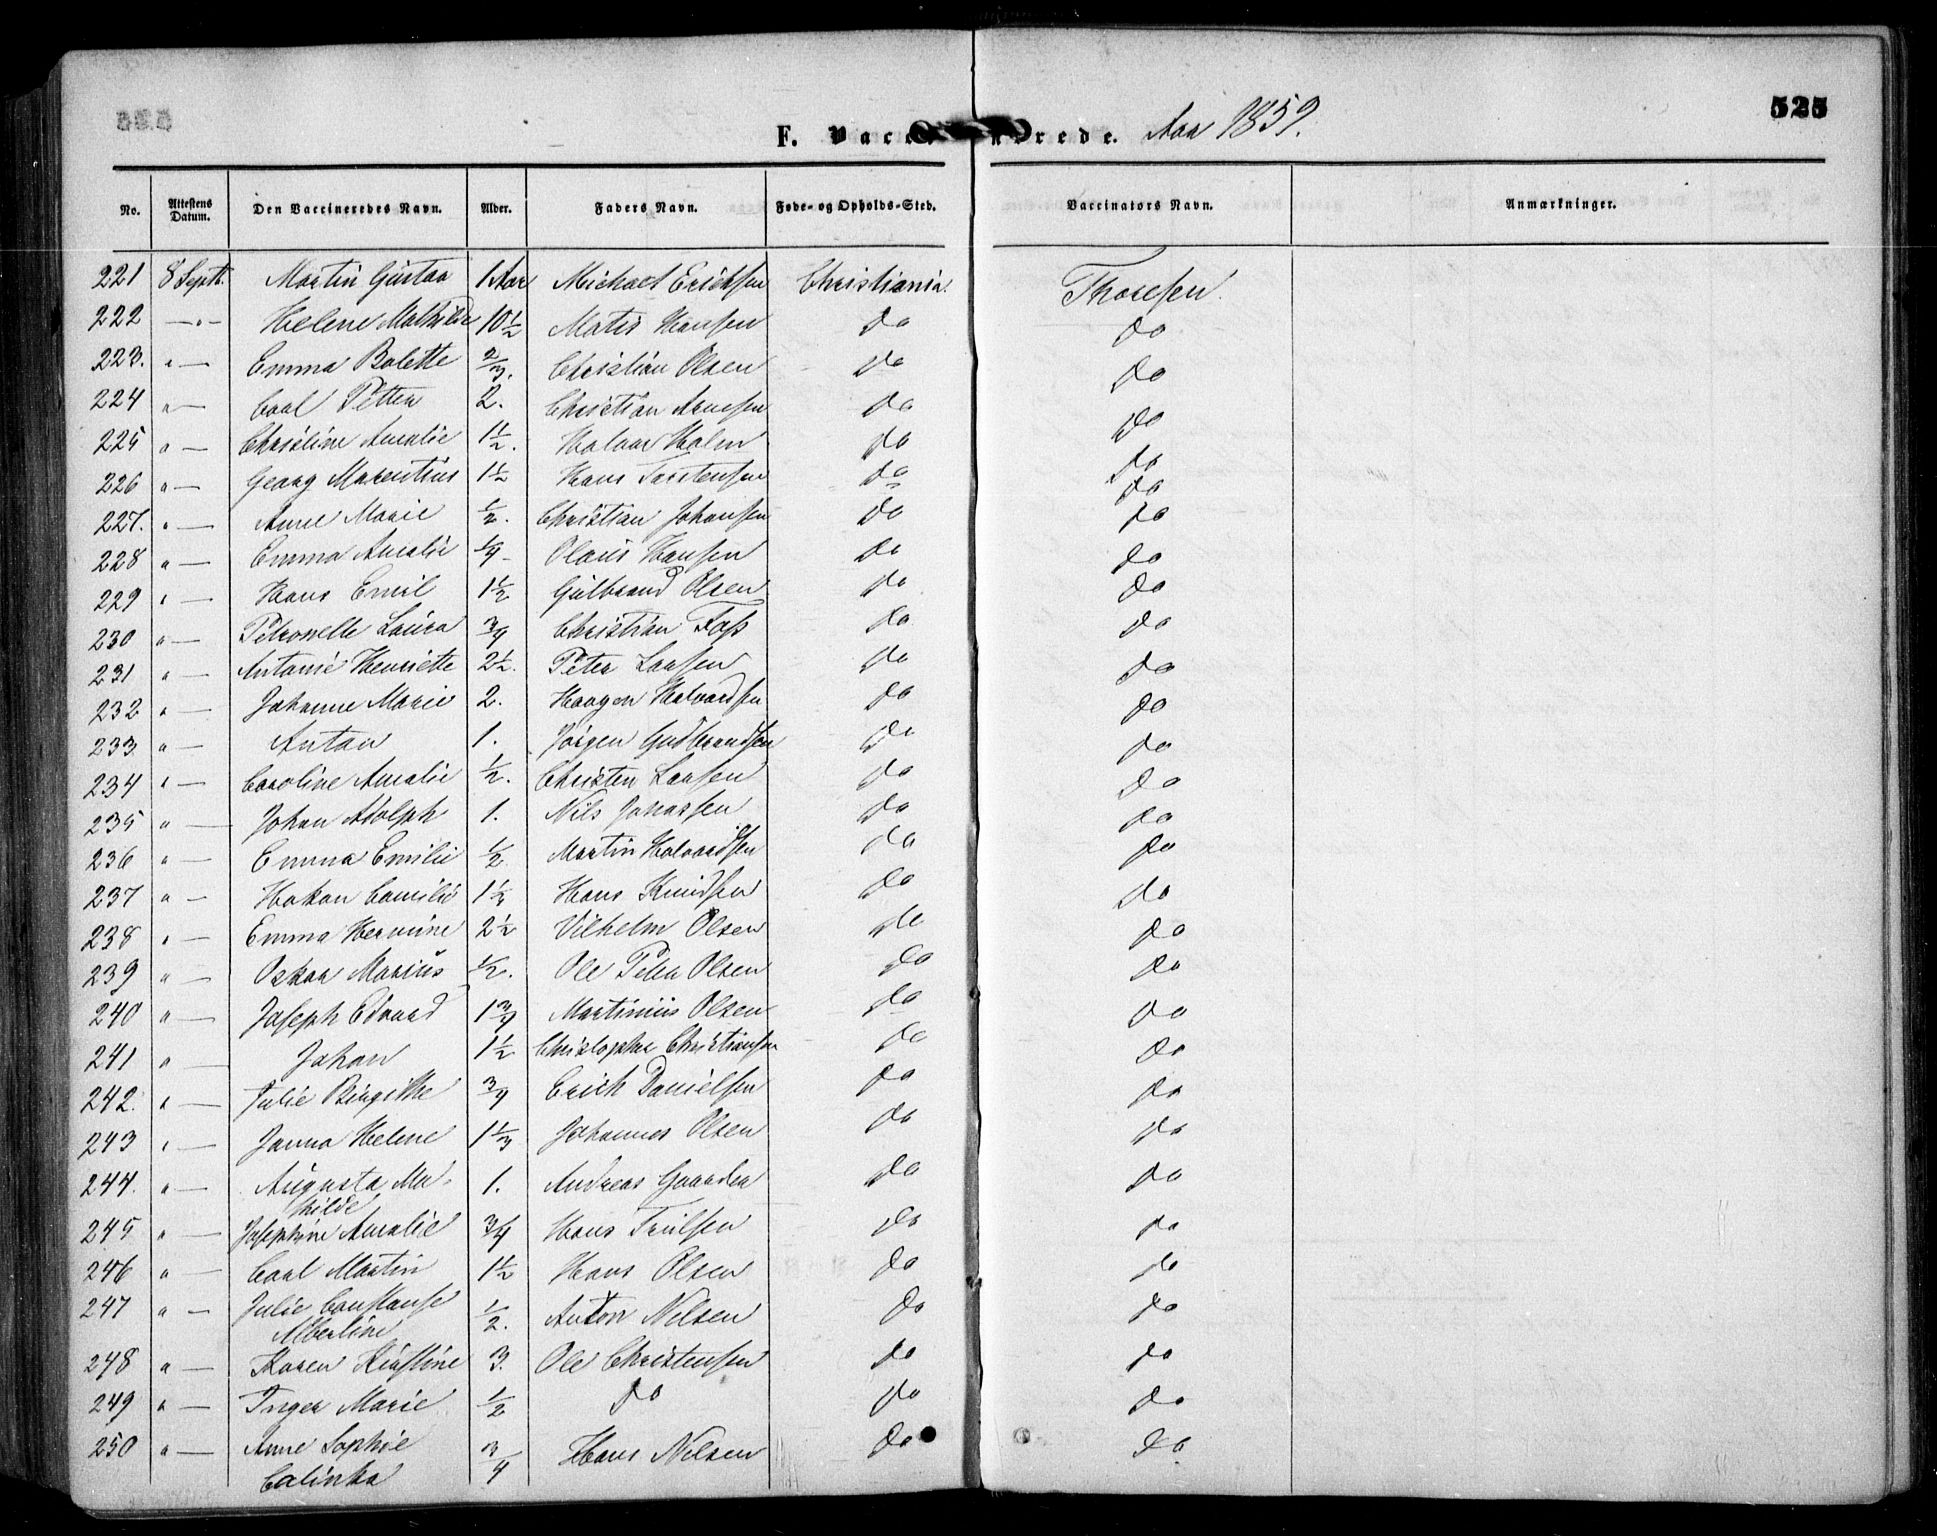 525
F. Vaccinerede. Aar 1859.
No. Attestens Datum. Den Vaccineredes Navn. Alder. Faders Navn. Føde- og Opholds-Sted. Vaccinators Navn. Anmærkninger.
221 8 Septb. Martin Gustav 1 Aar Michael Ericksen Christiania. Thoresen.
222 —"— Helene Mathilde 10 1/2 Matis Hansen do do
223. " — Emma Bolette 2/3. Christian Olsen do do
224 " — Carl Petter 2. Christian Arnesen do do
225 " — Christine Amalie 1 1/2. Halvor Holm do do
226 " — Georg Marentius 1 1/2 Hans Torstensen do do
227. " — Anne Marie 1/2. Christian Johansen do do
228 " — Emma Amalie 1/4 - Olaus Hansen do do
229 " — Hans Emil 1 1/2 Gulbrand Olsen do do
230 " — Petronelle Laura 3/4 Christian Foss do do
231 " — Antonie Henriette 2 1/2. Peter Larsen do do
232 " — Johanne Marie 2. Haagen Halvordsen do do
233. " — Anton 1. Jørgen Gudbrandsen do do
234 " — Caroline Amalie 1/2. Christen Larsen do do
235 " — Johan Adolph 1. Nils Johansen do do
236 " — Emma Emilie 1/2 Martin Halvordsen do do
237 " — Hakon Camilo 1 1/3 Hans Knudsen do do
238 " — Emma Hermine 2 1/2 Vilhelm Olsen do do
239 " — Oskar Marius 1/2. Ole Peter Olsen do do
240 " — Joseph Edvard 1 3/4 Martinius Olsen do do
241 " — Johan 1 1/2 Christopher Christiansen do do
242. " — Julie Birgithe 3/4 Erich Danielsen do do
243 " — Janna Helene 1 1/3 Johannes Olsen do do
244. " — Augusta Ma- 1. Andreas Gaarder do do
thilde
245 " — Josephine Amalie 3/4 Hans Trulsen do do
246 " — Carl Martin 1 1/2 Hans Olsen do do
247 " — Julie Constanse 1/2. Anton Nilsen do do
Albertine
248 " — Karen Kirstine 3. Ole Christensen do do
249 " — Inger Marie 1/2 do do do
250 " — Anne Sophie 3/4 Hans Nilsen do do
Calinka